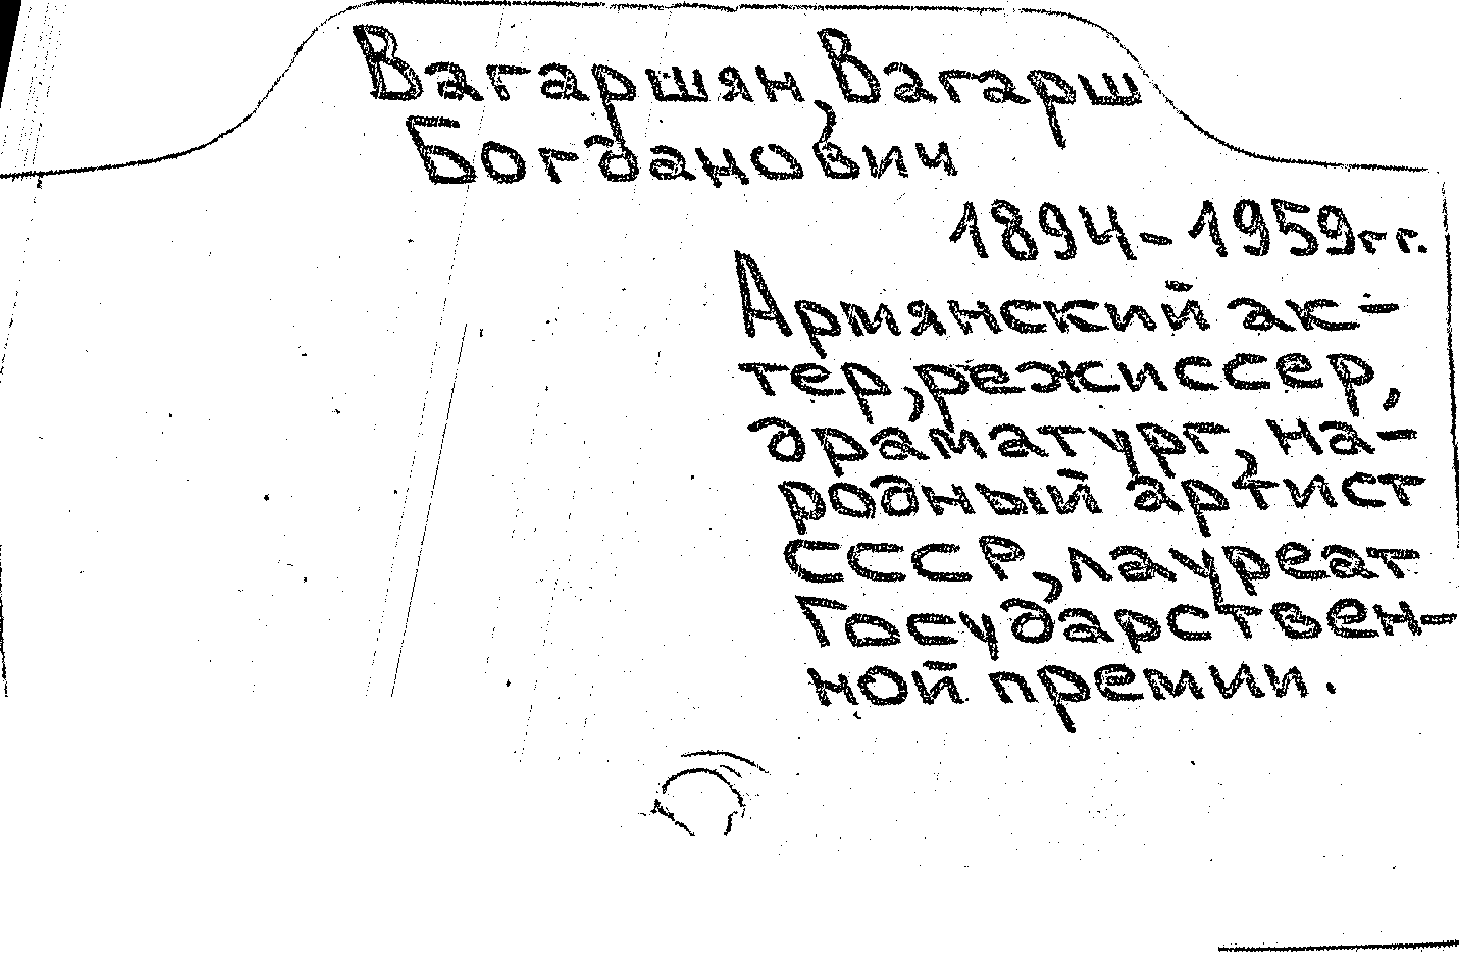 Вагаршян, Вагарш
Богданович
1894-1959гг.
Армянский ак-
тер, режиссер,
драматург, на-
родный артист
СССР, лауреат
Государствен-
ной премии.